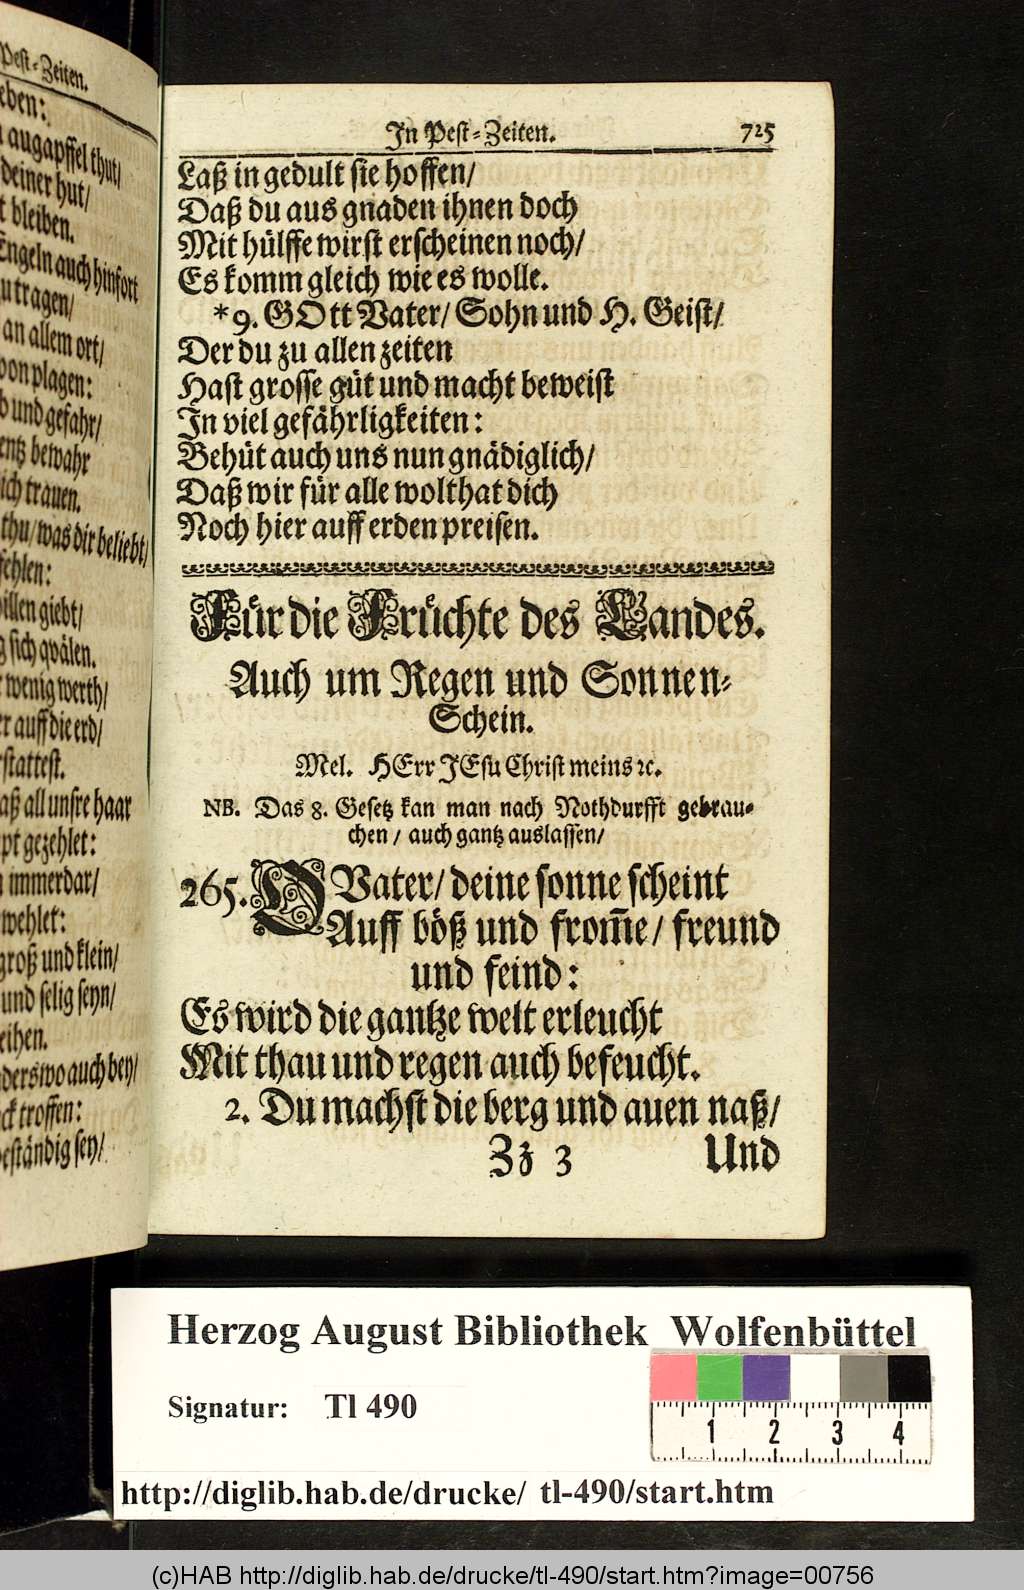 Pest-Zeiten.
eben:
augapffel thut/
deiner hut/
bleiben.
Engeln auch hinfort
tragen/
an allem ort/
plagen:
und gefahr/
bewahr
trauen.
thu/ was dir beliebt/
fehlen:
willen giebt/
sich qvälen.
wenig werth/
auff die erd/
all unsre haar
gezehlet:
immerdar/
wehlet:
groß und klein/
und selig seyn/
auch bey/
troffen:
beständig sey/
In Pest-Zeiten. 725
Laß in gedult sie hoffen/
Daß du aus gnaden ihnen doch
Mit hülffe wirst erscheinen noch/
Es komm gleich wie es wolle.
*9. GOtt Vater/ Sohn und H. Geist/
Der du zu allen zeiten
Hast grosse güt und macht beweist
In viel gefährligkeiten:
Behüt auch uns nun gnädiglich/
Daß wir für alle wolthat dich
Noch hier auff erden preisen.
Für die Früchte des Landes.
Auch um Regen und Sonnen-
Schein.
Mel. HErr JEsu Christ meins ꝛc.
NB. Das 8. Gesetz kan man nach Nothdurfft gebrau-
chen/ auch gantz auslassen/
265. O Vater/ deine sonne scheint
Auff böß und from̅e/ freund
und feind:
Es wird die gantze welt erleucht
Mit thau und regen auch befeucht.
2. Du machst die berg und auen naß/
Zz 3 Und
Herzog August Bibliothek Wolfenbüttel
Signatur: Tl 490
1 2 3 4
http://diglib.hab.de/drucke/ tl-490/start.htm
(c)HAB http://diglib.hab.de/drucke/tl-490/start.htm?image=00756